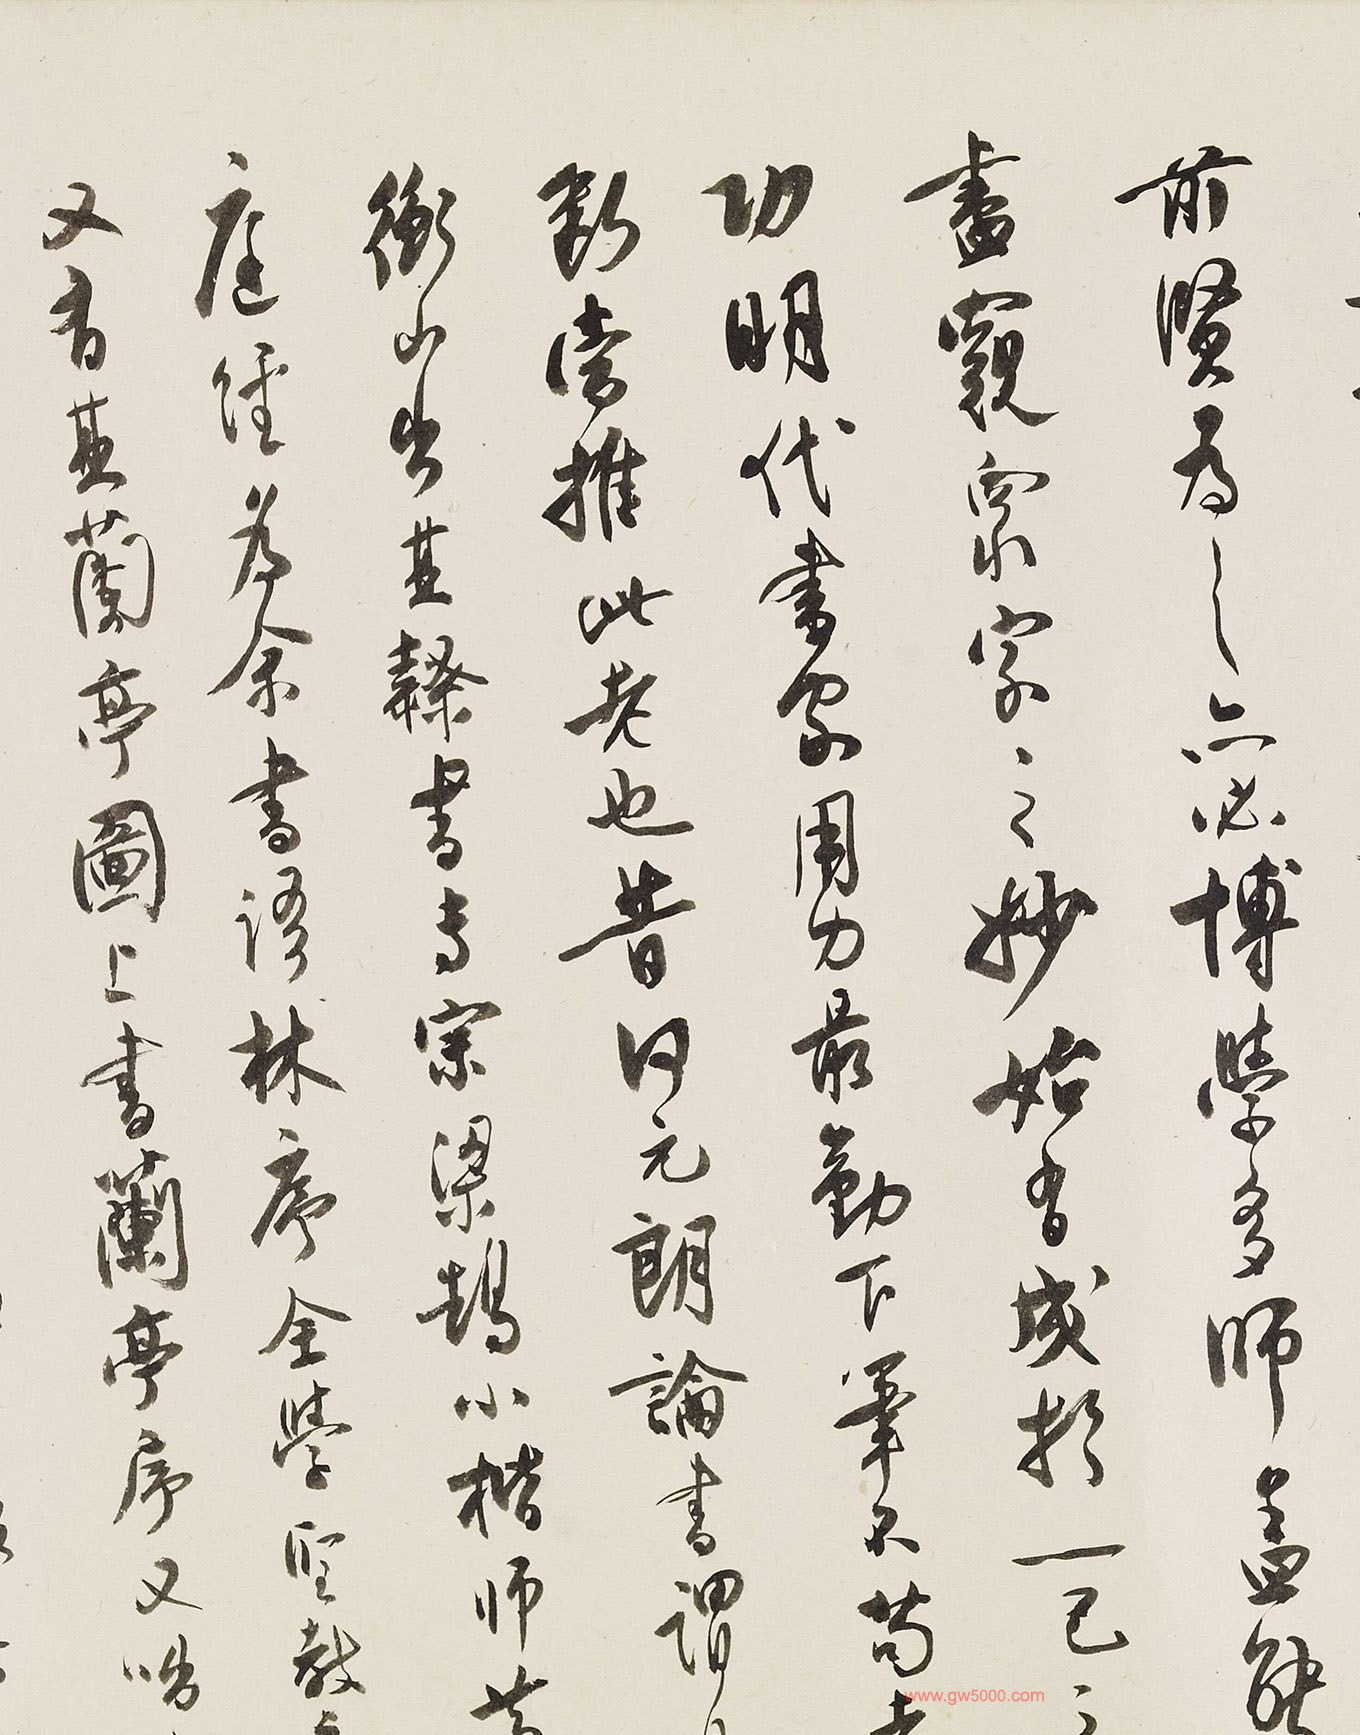 前賢為之亦必博學多師盡能
盡窺眾字之妙始有成於一己之
功明代書家用力最勤下筆不苟者
斷當推此老也昔何元朗論書謂
衡山出其隸書專宗梁鵠小楷師黃
庭經為余書語林序全學聖教
又有其蘭亭圖上書蘭亭序又咄
www.gw5000.com